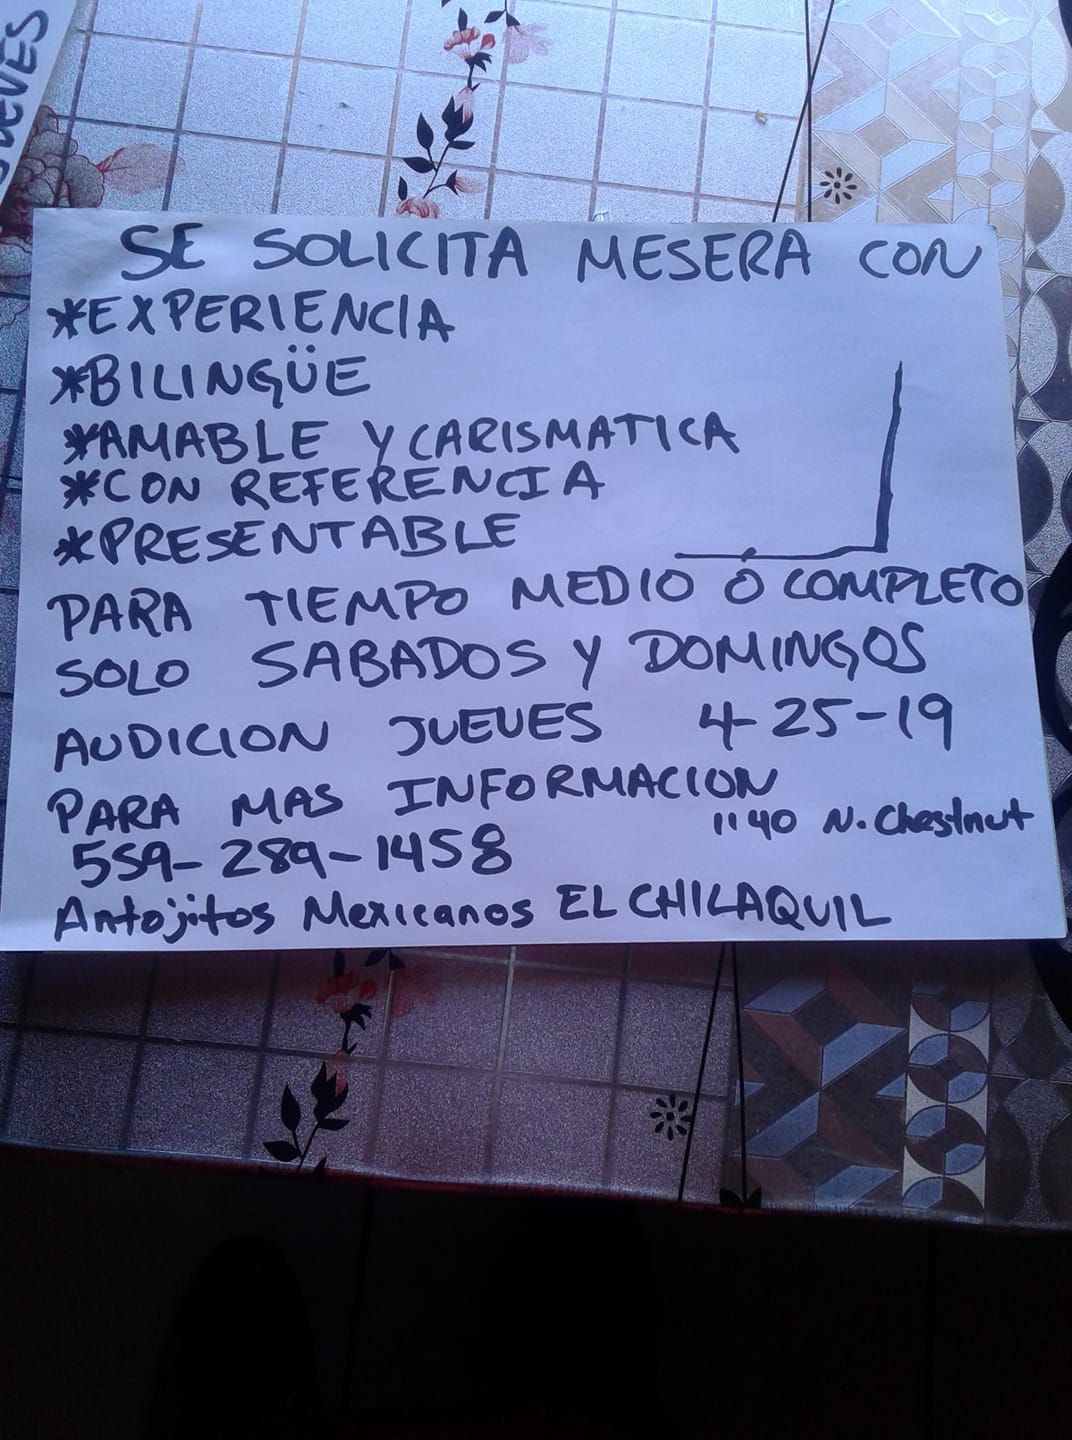 JUEVES
SE SOLICITA MESERA CON
*EXPERIENCIA
*BILINGÜE
*AMABLE Y CARISMATICA
*CON REFERENCIA
*PRESENTABLE
PARA TIEMPO MEDIO Ó COMPLETO
SOLO SABADOS Y DOMINGOS
AUDICION JUEVES 4-25-19
PARA MAS INFORMACION
1140 N. Chestnut
559-289-1458
Antojitos Mexicanos EL CHILAQUIL